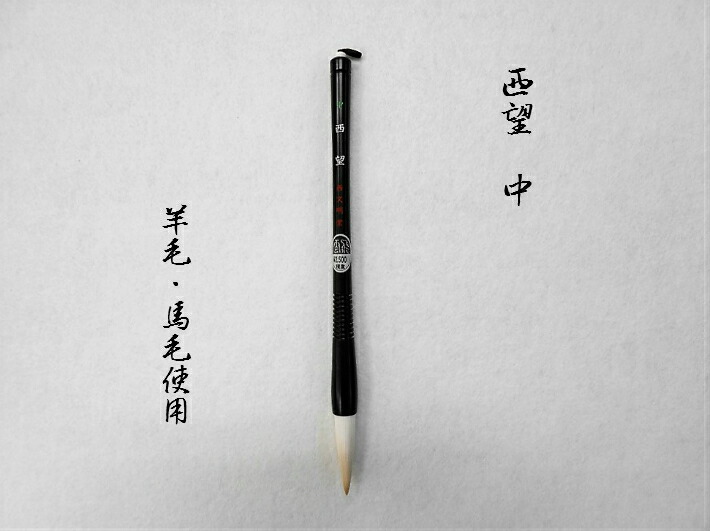 西望 中
西望
¥1,500
羊毛・馬毛使用